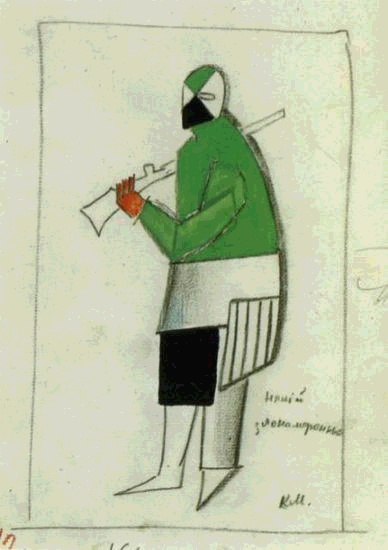 некій
злонамеренный
К.М.